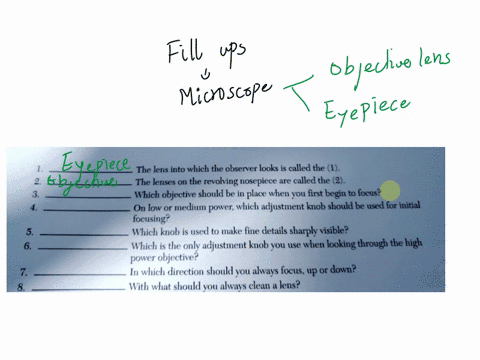 Fill ups
Microscope
Objective lens
Eyepiece
1. Eyepiece The lens into which the observer looks is called the (1).
2. Objective The lenses on the revolving nosepiece are called the (2).
3. Which objective should be in place when you first begin to focus?
4. On low or medium power, which adjustment knob should be used for initial
focusing?
5. Which knob is used to make fine details sharply visible?
6. Which is the only adjustment knob you use when looking through the high
power objective?
7. In which direction should you always focus, up or down?
8. With what should you always clean a lens?